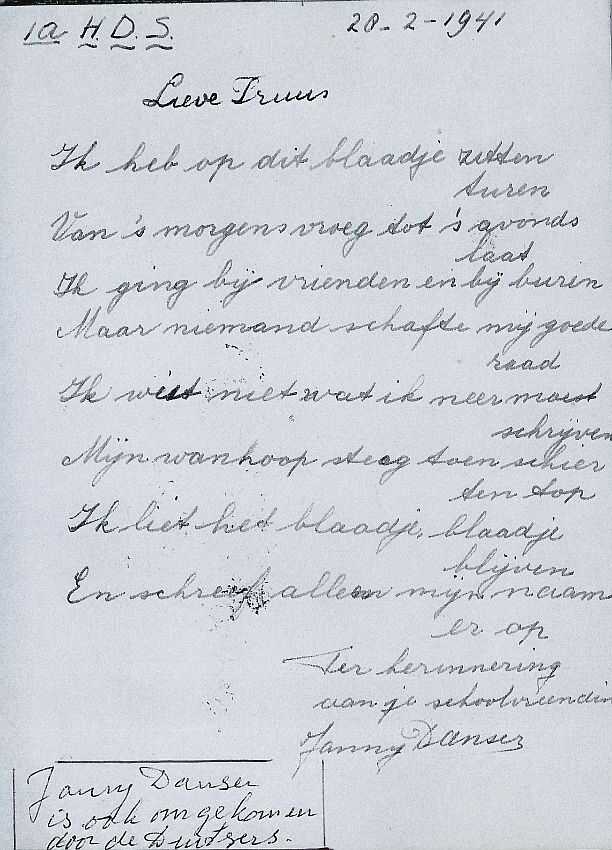 1a H.D.S. 28-2-1941
Lieve Truus
Ik heb op dit blaadje zitten
turen
Van 's morgens vroeg tot 's avonds
laat
Ik ging bij vrienden en bij buren
Maar niemand schafte mij goede
raad
Ik wist niet wat ik neer moest
schrijven
Mijn wanhoop steeg toen schier
ten top
Ik liet het blaadje, blaadje
blijven
En schreef alleen mijn naam
er op
Ter herinnering
aan je schoolvriendin
Janny Danser
Janny Danser
is ook omgekomen
door de Duitsers.